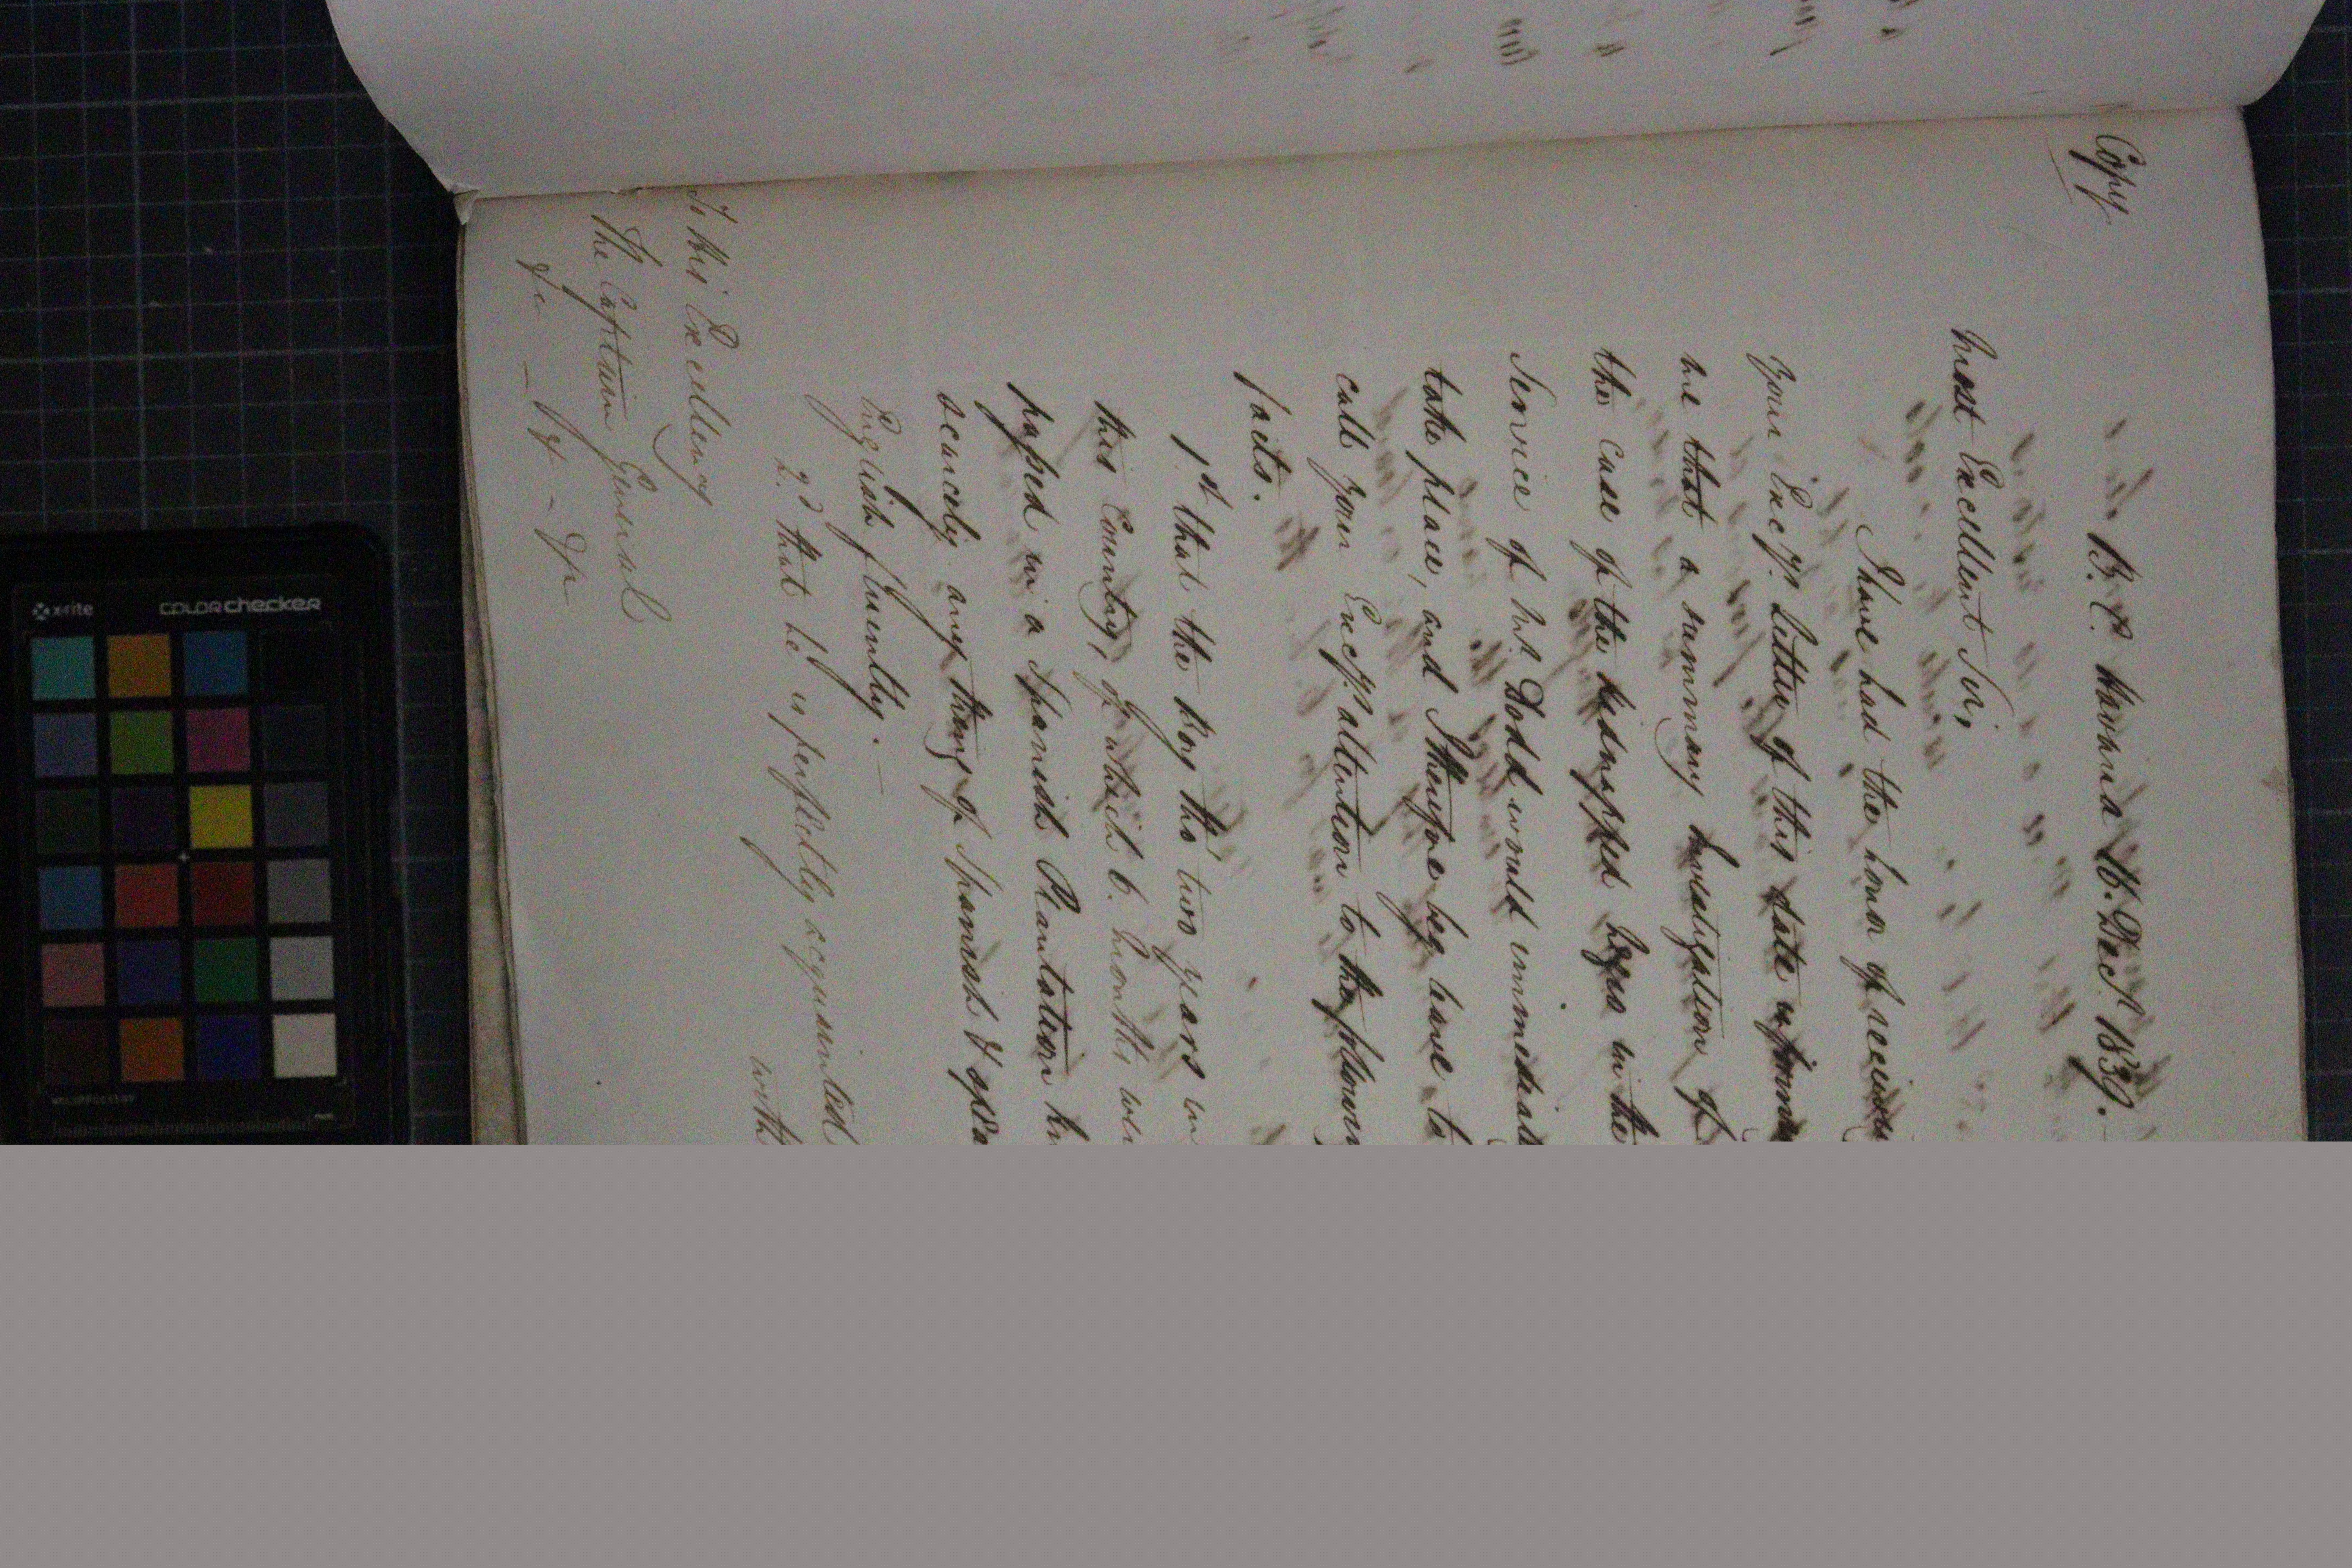 Copy
B. C. Havana 16. Dec.r 1839.
Most Excellent Sir,
I have had the honor of
your Exc'ys. letter of this date
me that a summary investigation of
the case of the kidnapped Negro in the
Service of Mr Dodd would
take place, and I therefore beg leave to
call your Exc'ys attention to the
facts.
1st that the boy tho' two years in
this Country, of which 6. months
passed in a Spanish Plantation
scarcely any thing of Spanish &
English fluently. —
2.d that he is perfectly acquainted
with
To His Excellency
The Captain General
&c — &c - &c
x-rite
colorchecker